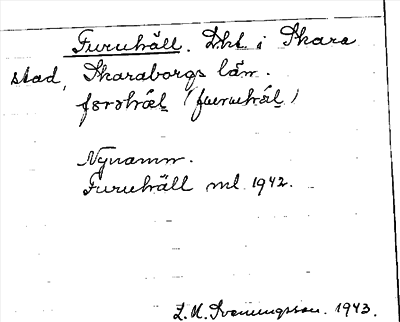 Furuhäll. Lht. i Skara
stad, Skaraborgs län.
(furuhäl)
Nynamn.
Furuhäll ml 1942.
L. M. Svenungsson. 1943.